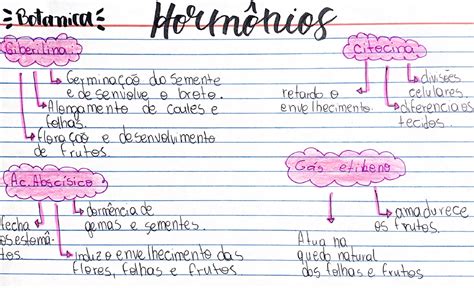 Botanica
Hormônios
Giberilina:
Germinação do semente
e desenvolve o broto.
Alongamento de caules e
folhas.
Floração e desenvolvimento
de frutos.
Citocina
divisões
celulares.
retarda o
envelhecimento.
diferencia os
tecidos.
Ac. Abscísico
dormência de
gemas e sementes.
fecha
os estomâ-
tos.
Induz o envelhecimento das
flores, folhas e frutos.
Gás etileno
amadurece
os frutos.
Atua na
queda natural
das folhas e frutos